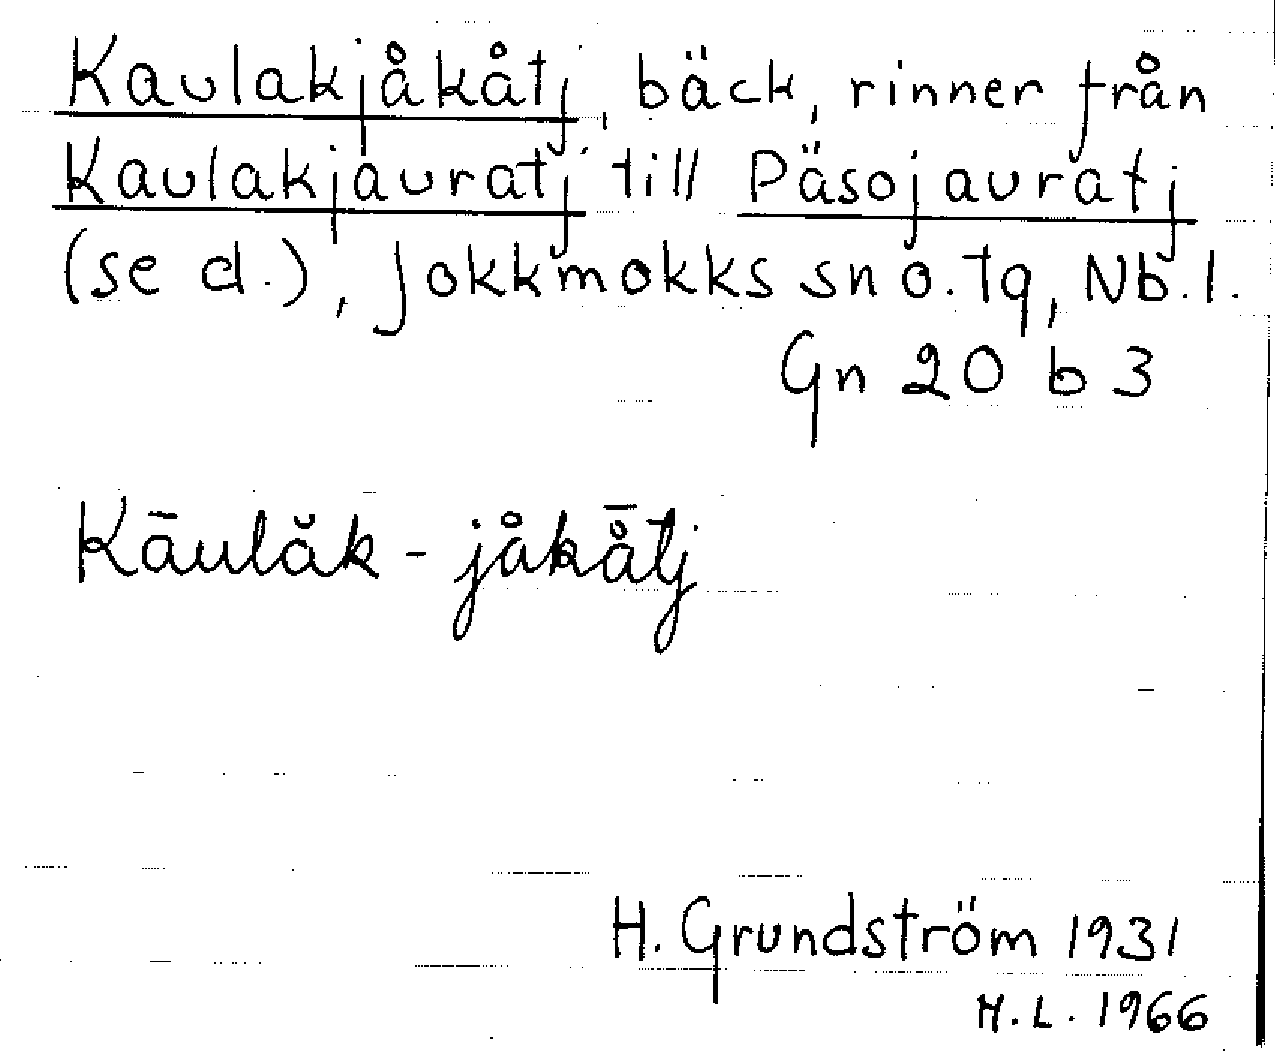 Kaulakjåkåtj, bäck, rinner från
Kaulakjauratj till Päsojauratj
(se d.), Jokkmokks sn o. tg, Nb. l.
Gn 20 b 3
Kāulăk - jåkå̄tj
H. Grundström 1931
H. L. 1966